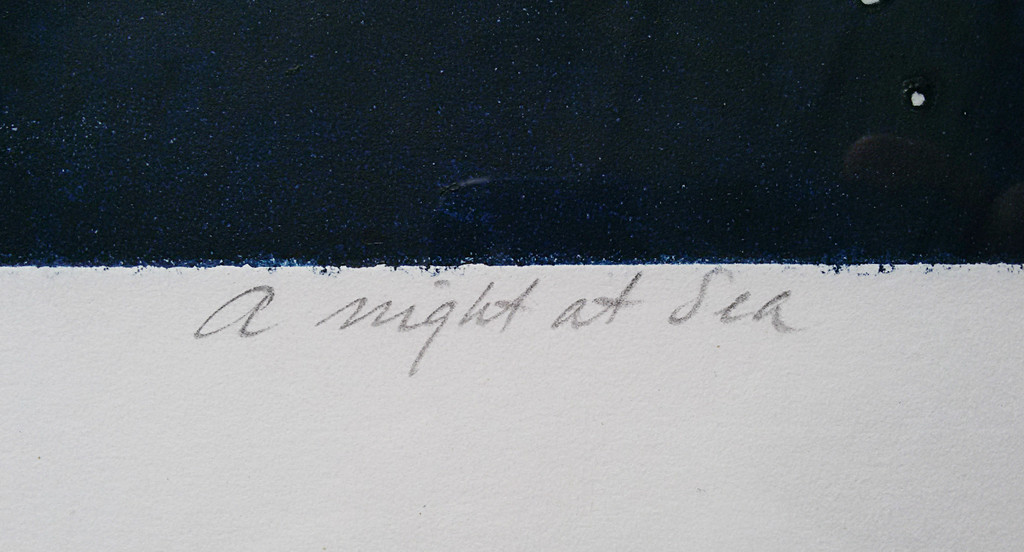 A night at Sea